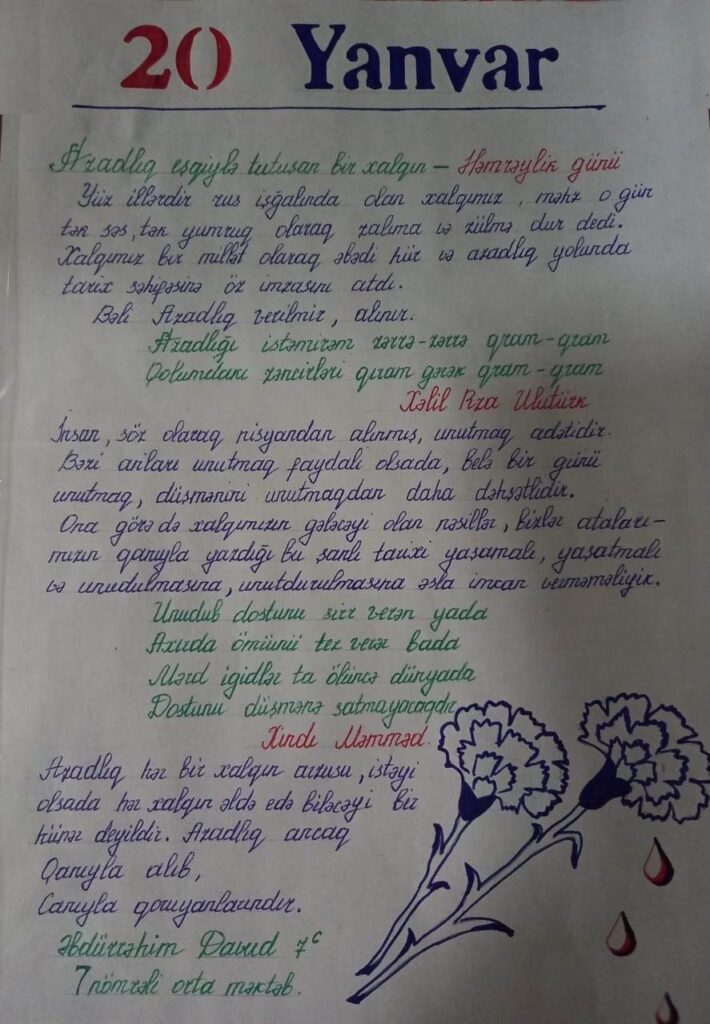 20 Yanvar
Azadlıq eşqiylə tutuşan bir xalqın – Həmrəylik günü
Yüz illərdir rus işğalında olan xalqımız, məhz o gün
tək səs, tək yumruq olaraq zalıma və zülmə dur dedi.
Xalqımız bir millət olaraq əbədi hür və azadlıq yolunda
tarix səhifəsinə öz imzasını atdı.
Bəli Azadlıq verilmir, alınır.
Azadlığı istəmirəm zərrə-zərrə qram-qram
Qolumdakı zəncirləri qıram gərək qram-qram
Xəlil Rza Ulutürk
İnsan, söz olaraq nisyandan alınmış, unutmaq adətidir.
Bəzi anları unutmaq faydalı olsada, belə bir günü
unutmaq, düşmənini unutmaqdan daha dəhşətlidir.
Ona görə də xalqımızın gələcəyi olan nəsillər, bizlər ataları-
mızın qanıyla yazdığı bu şanlı tarixi yaşamalı, yaşatmalı
və unudulmasına, unutdurulmasına əsla imkan verməməliyik.
Unudub dostunu sirr verən yada
Axırda ömünü tez verər bada
Mərd igidlər ta ölüncə dünyada
Dostunu düşmənə satmayacaqdır
Xındı Məmməd.
Azadlıq hər bir xalqın arzusu, istəyi
olsada hər xalqın əldə edə biləcəyi bir
hünər deyildir. Azadlıq ancaq
Qanıyla alıb,
Canıyla qoruyanlarındır.
Əbdürrəhim Davud 7ᶜ
7 nömrəli orta məktəb.